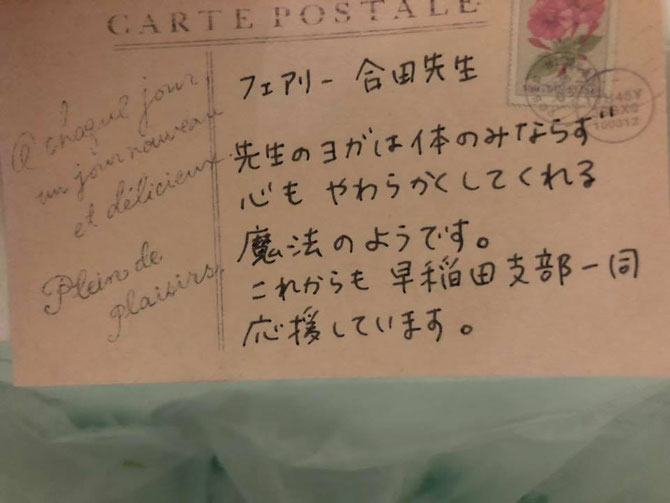 CARTE POSTALE
A chaque jour,
un jour nouveau
et délicieux
Plein de
plaisirs,
フェアリー 合田先生
先生のヨガは体のみならず
心も やわらかくしてくれる
魔法のようです。
これからも 早稲田支部一同
応援しています。